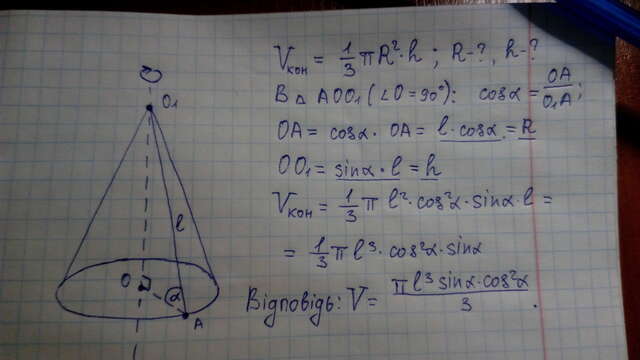 V кон = 1/3 πR²·h ; R-?, h-?
В △ AOO₁ (∠O = 90°): cosα = OA/O₁A ;
OA = cosα · OA = l·cosα = R
OO₁ = sinα · l = h
V кон = 1/3 π l²·cos²α·sinα·l =
= 1/3 π l³·cos²α·sinα
Відповідь: V = πl³sinα·cos²α/3 .
O₁
l
O
α
A